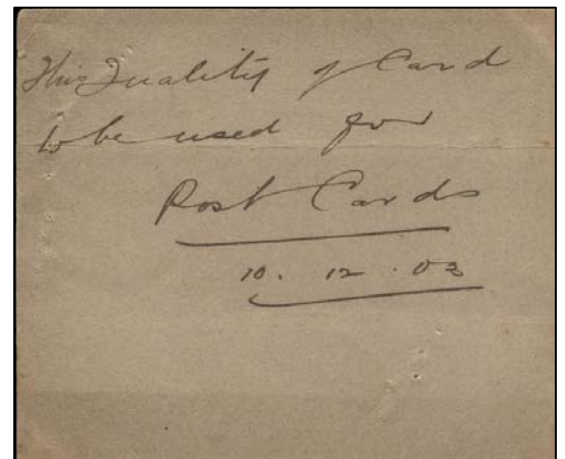 This Quality of Card
to be used for
Post Cards
10. 12. 03